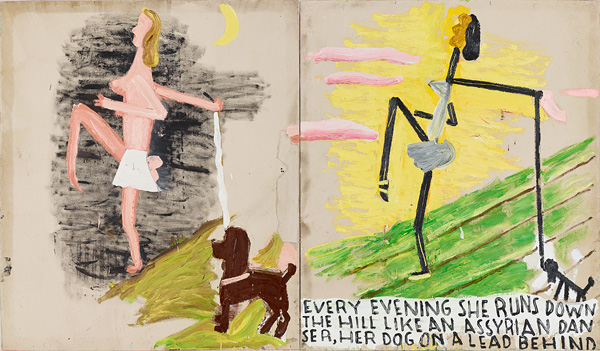 EVERY EVENING SHE RUNS DOWN
THE HILL LIKE AN ASSYRIAN DAN
SER, HER DOG ON A LEAD BEHIND